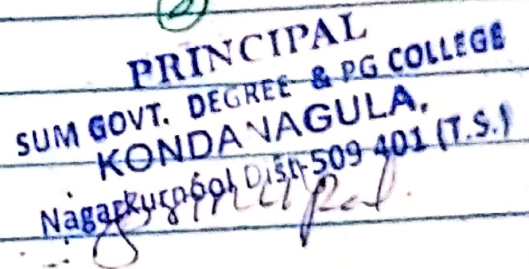 2
PRINCIPAL
SUM GOVT. DEGREE & PG COLLEGE
KONDANAGULA,
Nagarkurnool Dist-509 401 (T.S.)
Principal